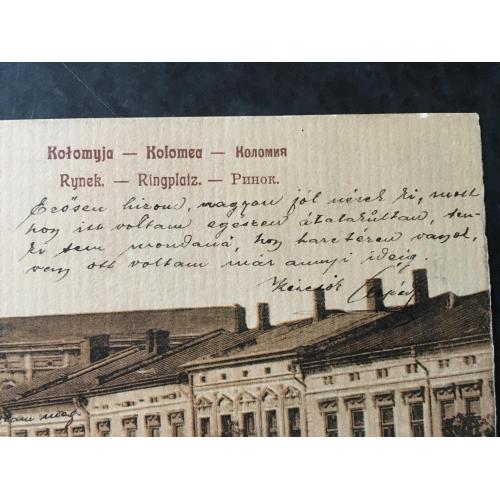 Kołomyja — Kolomea — Коломия
Rynek. — Ringplatz. — Ринок.
Erősen hizom, nagyon jól nézek ki, most
hogy itt voltam egészen átalakúltam, sen-
ki sem mondaná, hogy harctéren vagyok,
vagy ott voltam már annyi ideig.